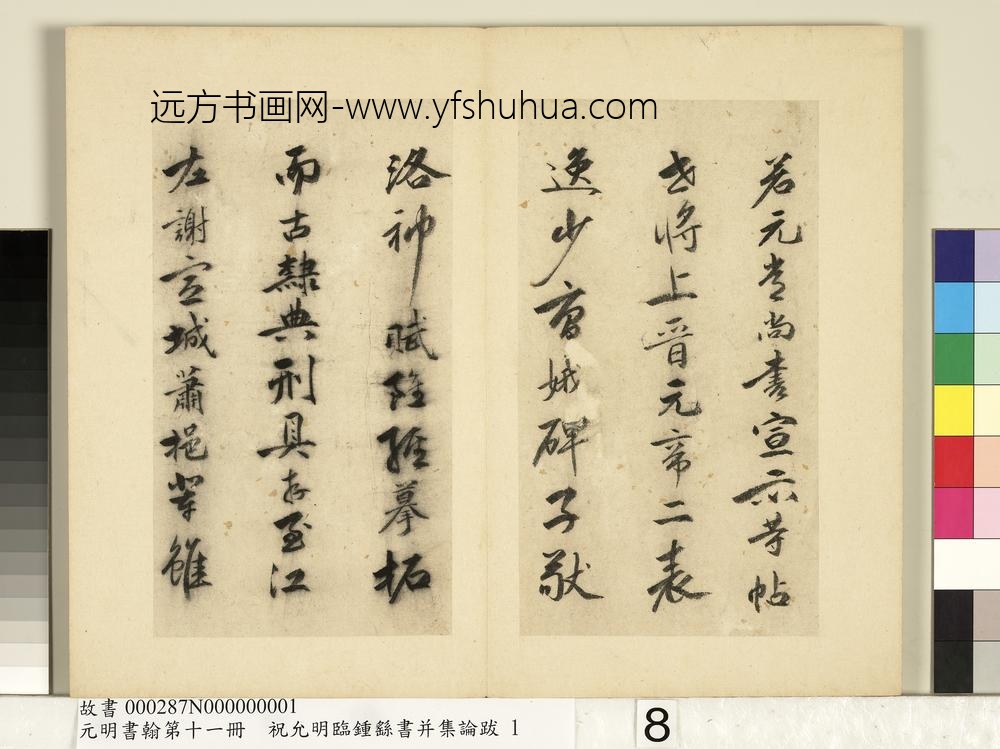 远方书画网-www.yfshuhua.com
若元常尚書宣示等帖
世將上晉元帝二表
逸少曹娥碑子敬
洛神賦雖經摹拓
而古隸典刑具存至江
左謝宣城蕭挹輩雖
故書 000287N000000001
元明書翰第十一冊　祝允明臨鍾繇書并集論跋 1
8